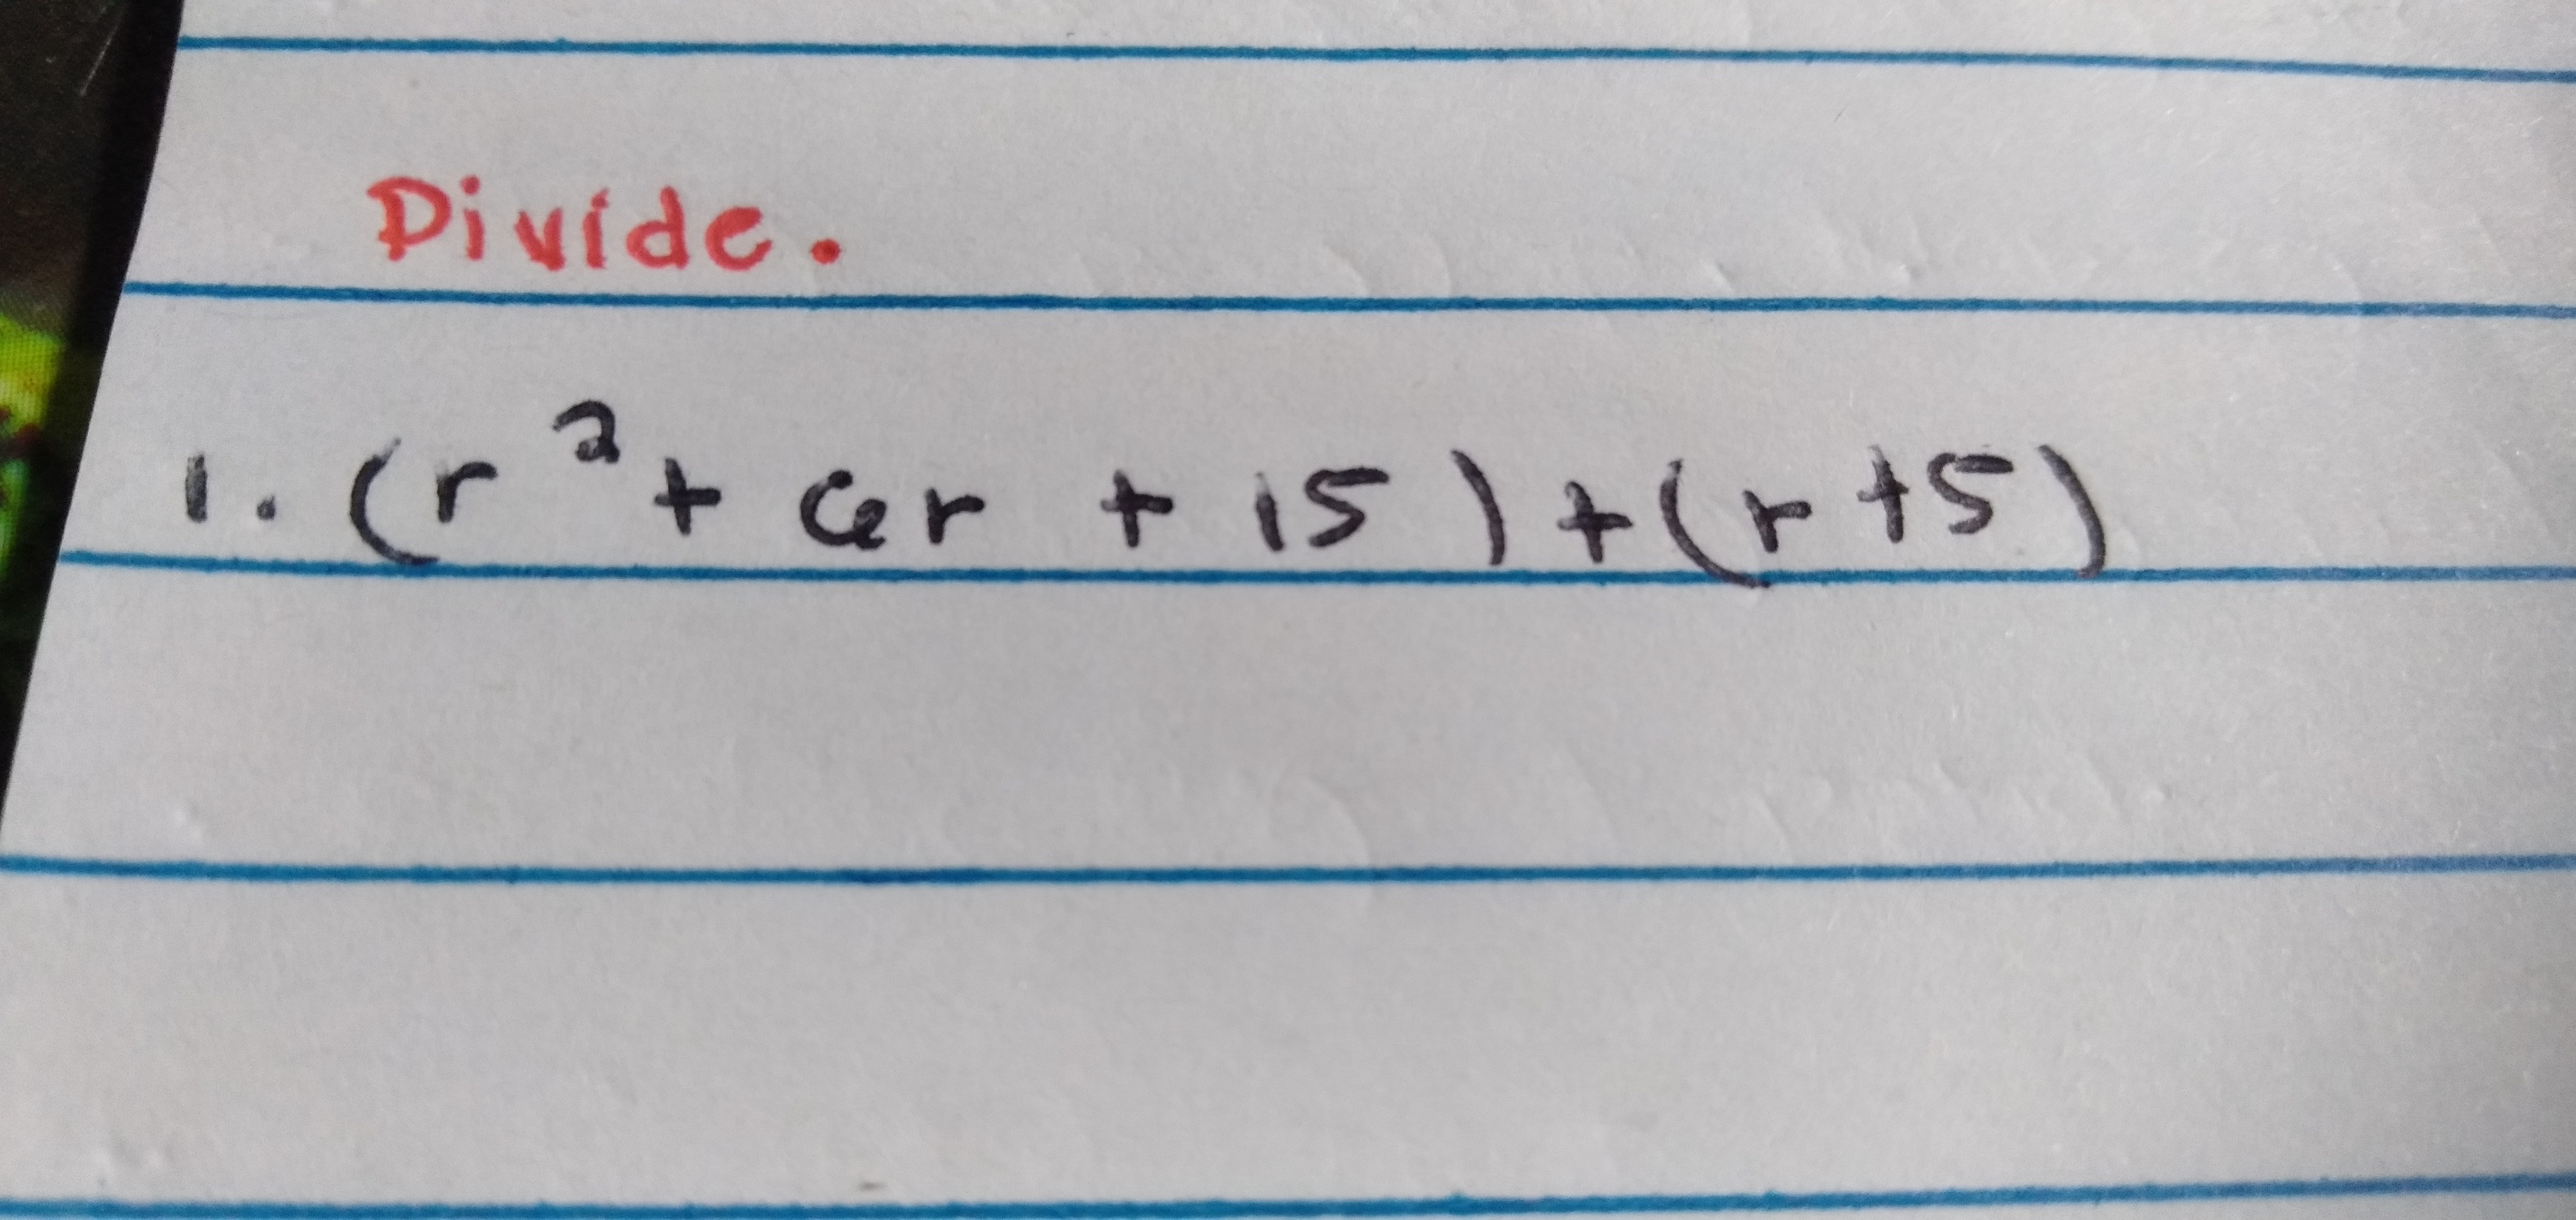 Divide.
1. (r² + 6r + 15) + (r + 5)